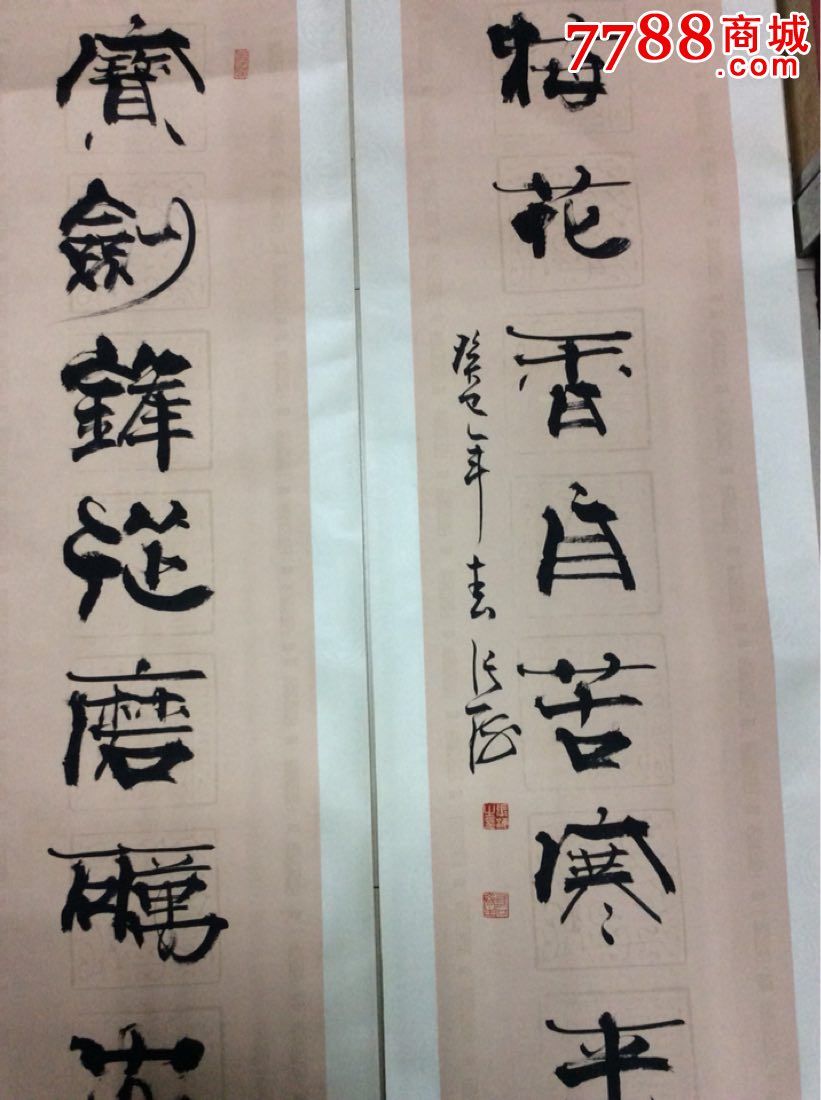 7788商城
.com
寶劍鋒從磨礪出
梅花香自苦寒來
癸巳年春